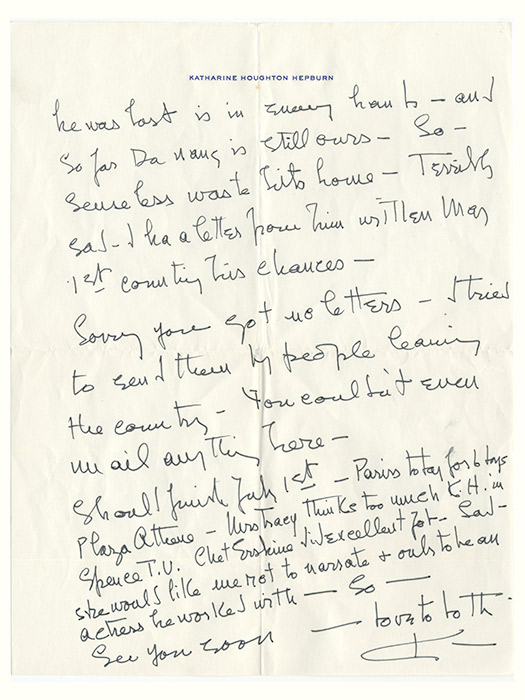 KATHARINE HOUGHTON HEPBURN
he was lost is in enemy hands – and
So far Da Nang is still ours – So –
Senseless waste hits home – Terribly
sad – I had a letter from him written May
1st counting his chances –
Sorry you got no letters – I tried
to send them by people leaving
the country – You couldn't even
mail anything here –
Should finish July 1st – Paris today for 6 days
Plaza Athene – Mrs Tracy thinks too much K.H. in
Spence T.V. Chet Erskine did excellent job – Sad –
she would like me not to narrate & only to be an
actress he worked with — So —
See you soon — love to both
K